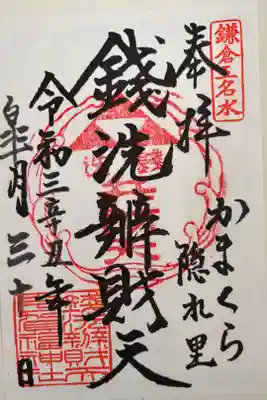 鎌倉五名水
奉拝
かまくら
隠れ里
錢洗辨財天
令和三辛丑年
皐月三十日